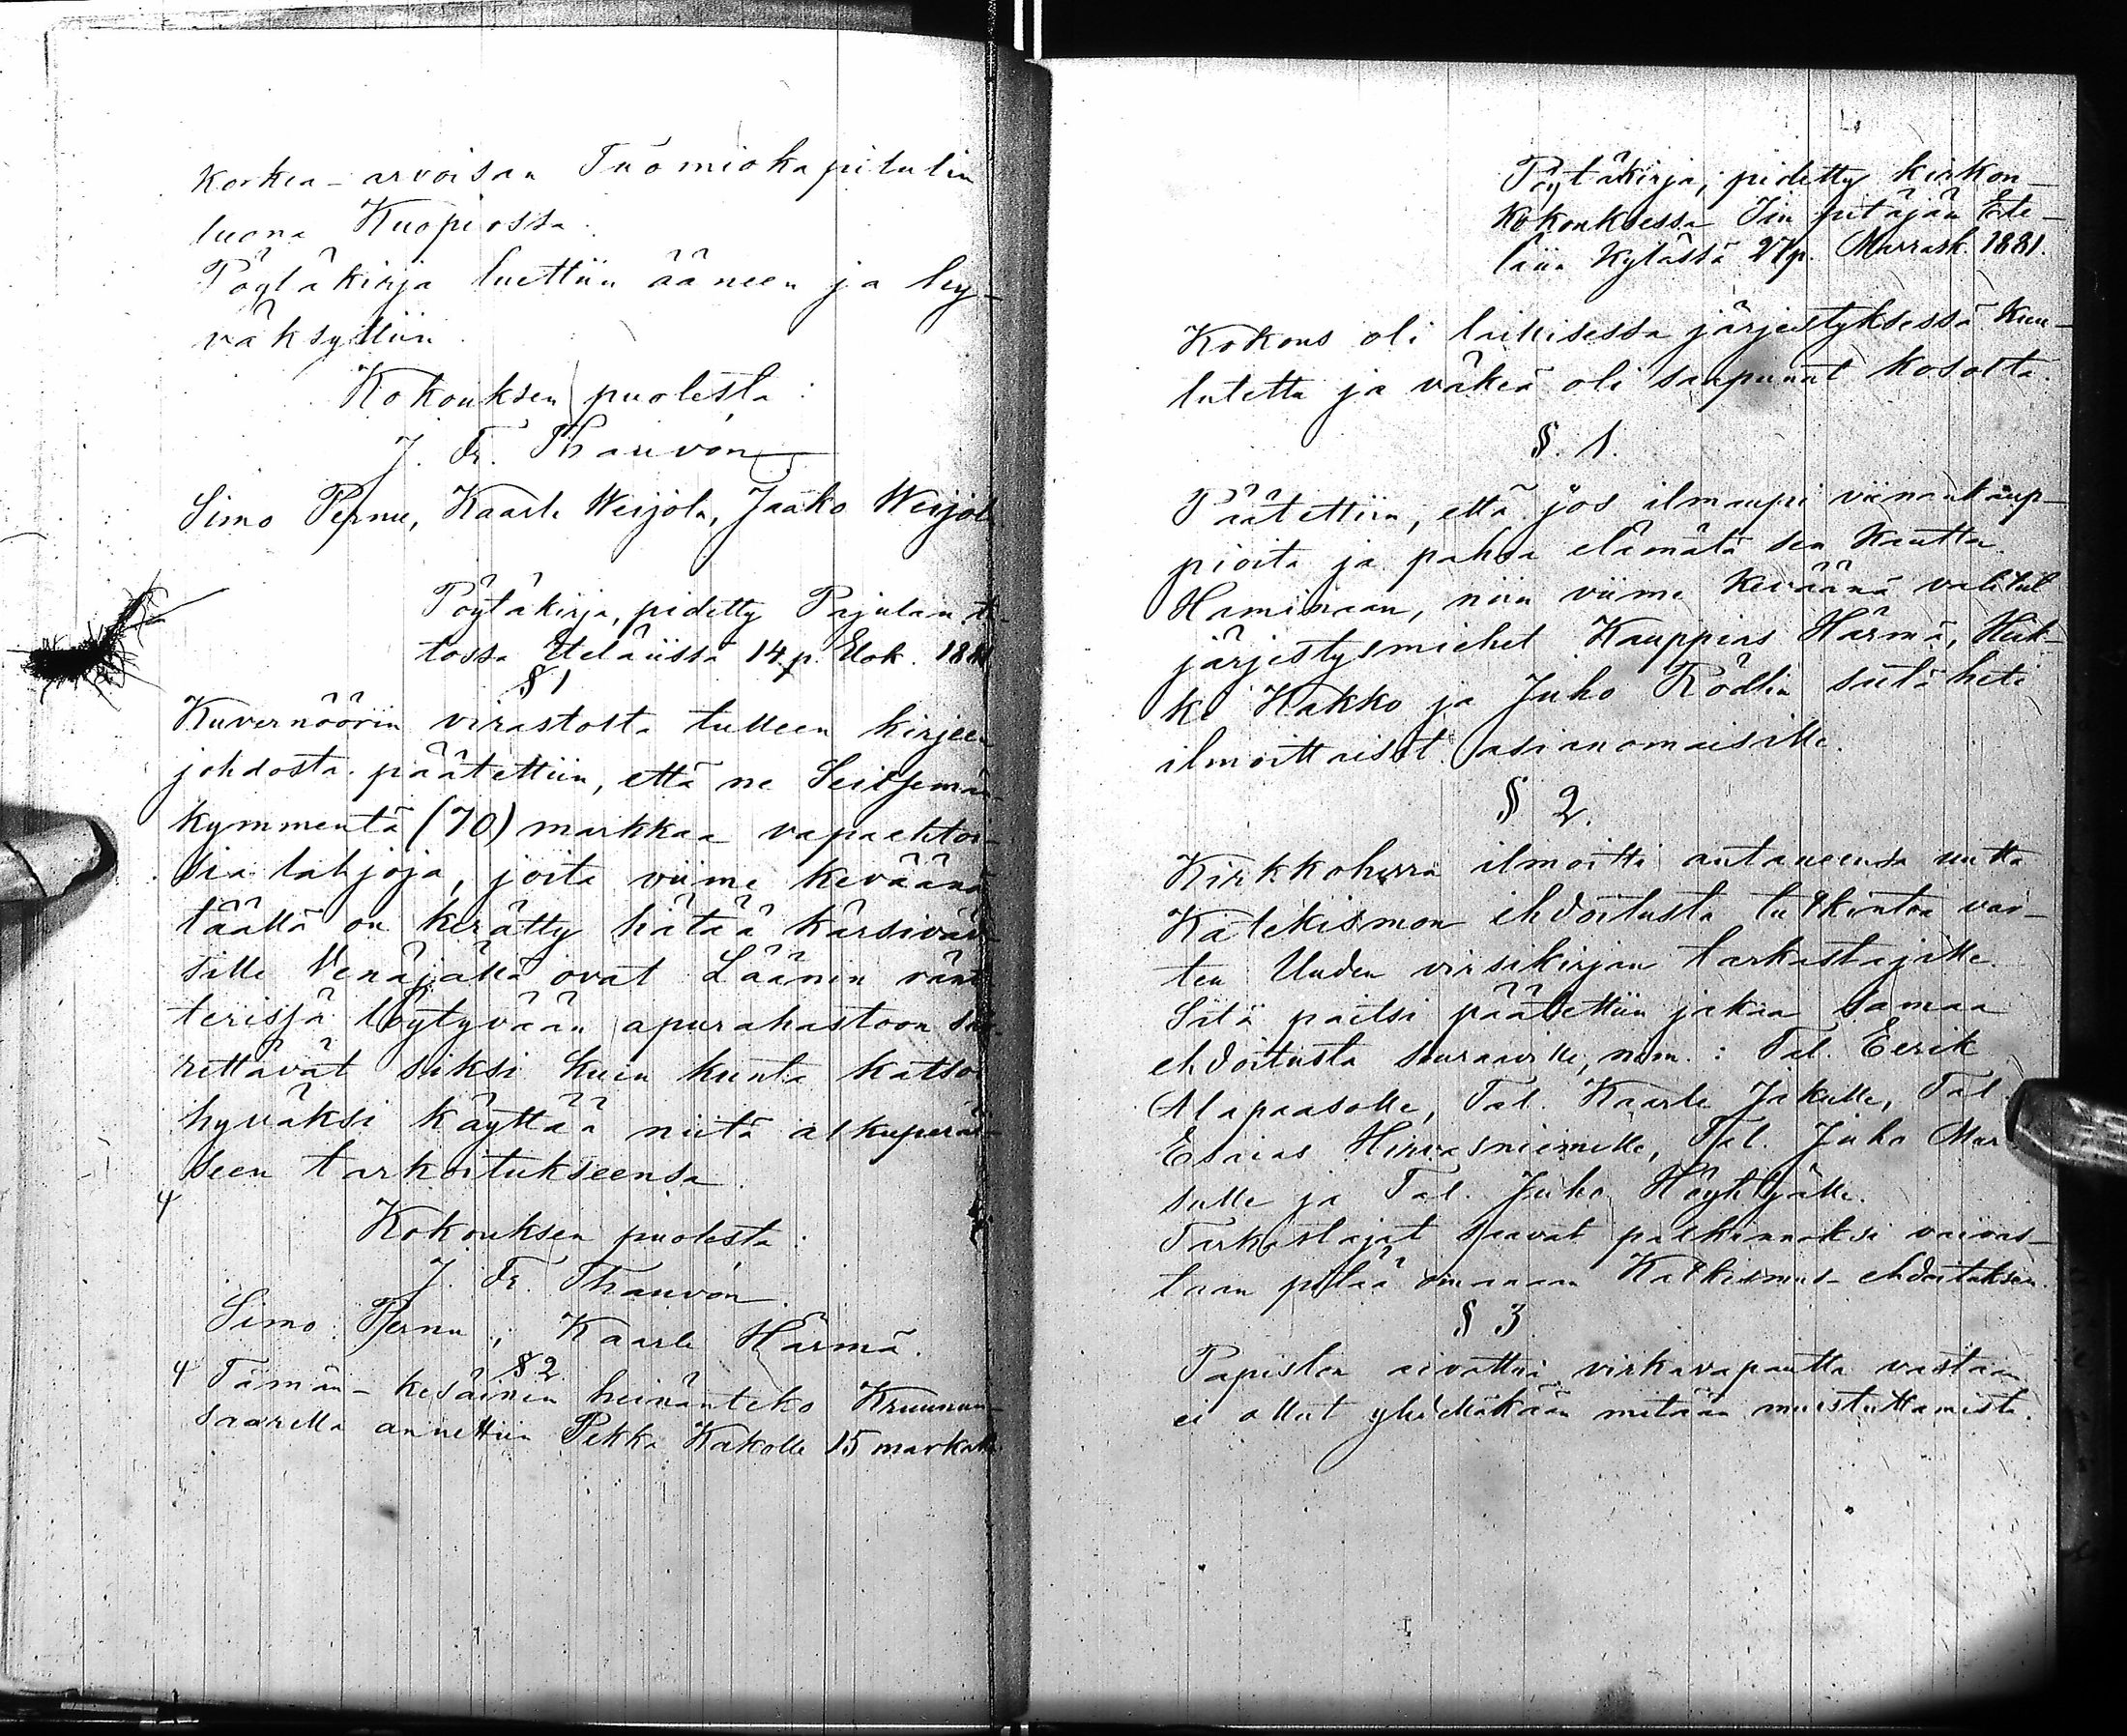 Korkea-arvoisan Tuomiokapitulin
luona Kuopiossa.
Pöytäkirja luettiin ääneen ja hy-
väksyttiin.
Kokouksen puolesta:
J. Fr. Thauvón
Simo Pernu, Kaarle Weijola, Jaako Weijola
Pöytäkirja, pidetty Pajulan ta-
lossa Eteläiissä 14 p. Elok. 1881
§ 1
Kuvernöörin virastosta tulleen kirjeen
johdosta päätettiin, että ne Seitsemän-
kymmentä (70) markkaa vapaehtoi-
sia lahjoja, joita viime keväänä
täällä on kerätty hätää kärsiväi-
sille Venäjällä ovat Läänin ränt-
terissä löytyvään apurahastoon siir-
rettävät siksi kuin kunta katsoo
hyväksi käyttää niitä alkuperäi-
seen tarkoitukseensa.
4
Kokouksen puolesta:
J. Fr. Thauvón.
Simo Pernu, Kaarle Härmä.
§ 2
4 Tämän-kesäinen heinänteko Kruunun-
saarella annettiin Pekka Kakolle 15 markalla
Pöytäkirja, pidetty kirkon-
kokouksessa Iin pitäjän Ete-
läiin Kylässä 27 p. Marrask. 1881.
Kokous oli laikisessa järjestyksessä Kuu-
lutettu ja väkeä oli saapunut kosolta.
§. 1.
Päätettiin, että jos ilmaupi viinankaup-
pioita ja pahaa elämätä sen kautta
Haminaan, niin viime Keväänä valitut
järjestysmiehet Kauppias Härmä, Heik-
ki Kakko ja Juho Rödlin siitä heti
ilmoittaisit asianomaisille.
§ 2.
Kirkkoherra ilmoitti antaneensa uutta
Katekismon ehdoitusta tutkintoa var-
ten Uuden virsikirjan tarkastajille.
Sitä paitsi päätettiin jakaa samaa
ehdoitusta seuraaville, nim.: Tal. Eerik
Alapaasolle, Tal. Kaarle Jakulle, Tal.
Esaias Hirvasniemelle, Tal. Juho Mar
sulle ja Tal. Juho Höyhtyälle.
Tarkastajat saavat palkinnoksi vaivas-
taan pitää omanaan Katkismus-ehdoituksen.
§ 3
Papiston aivottua virkavapautta vastaan
ei ollut yhdelläkään mitään muistuttamista.